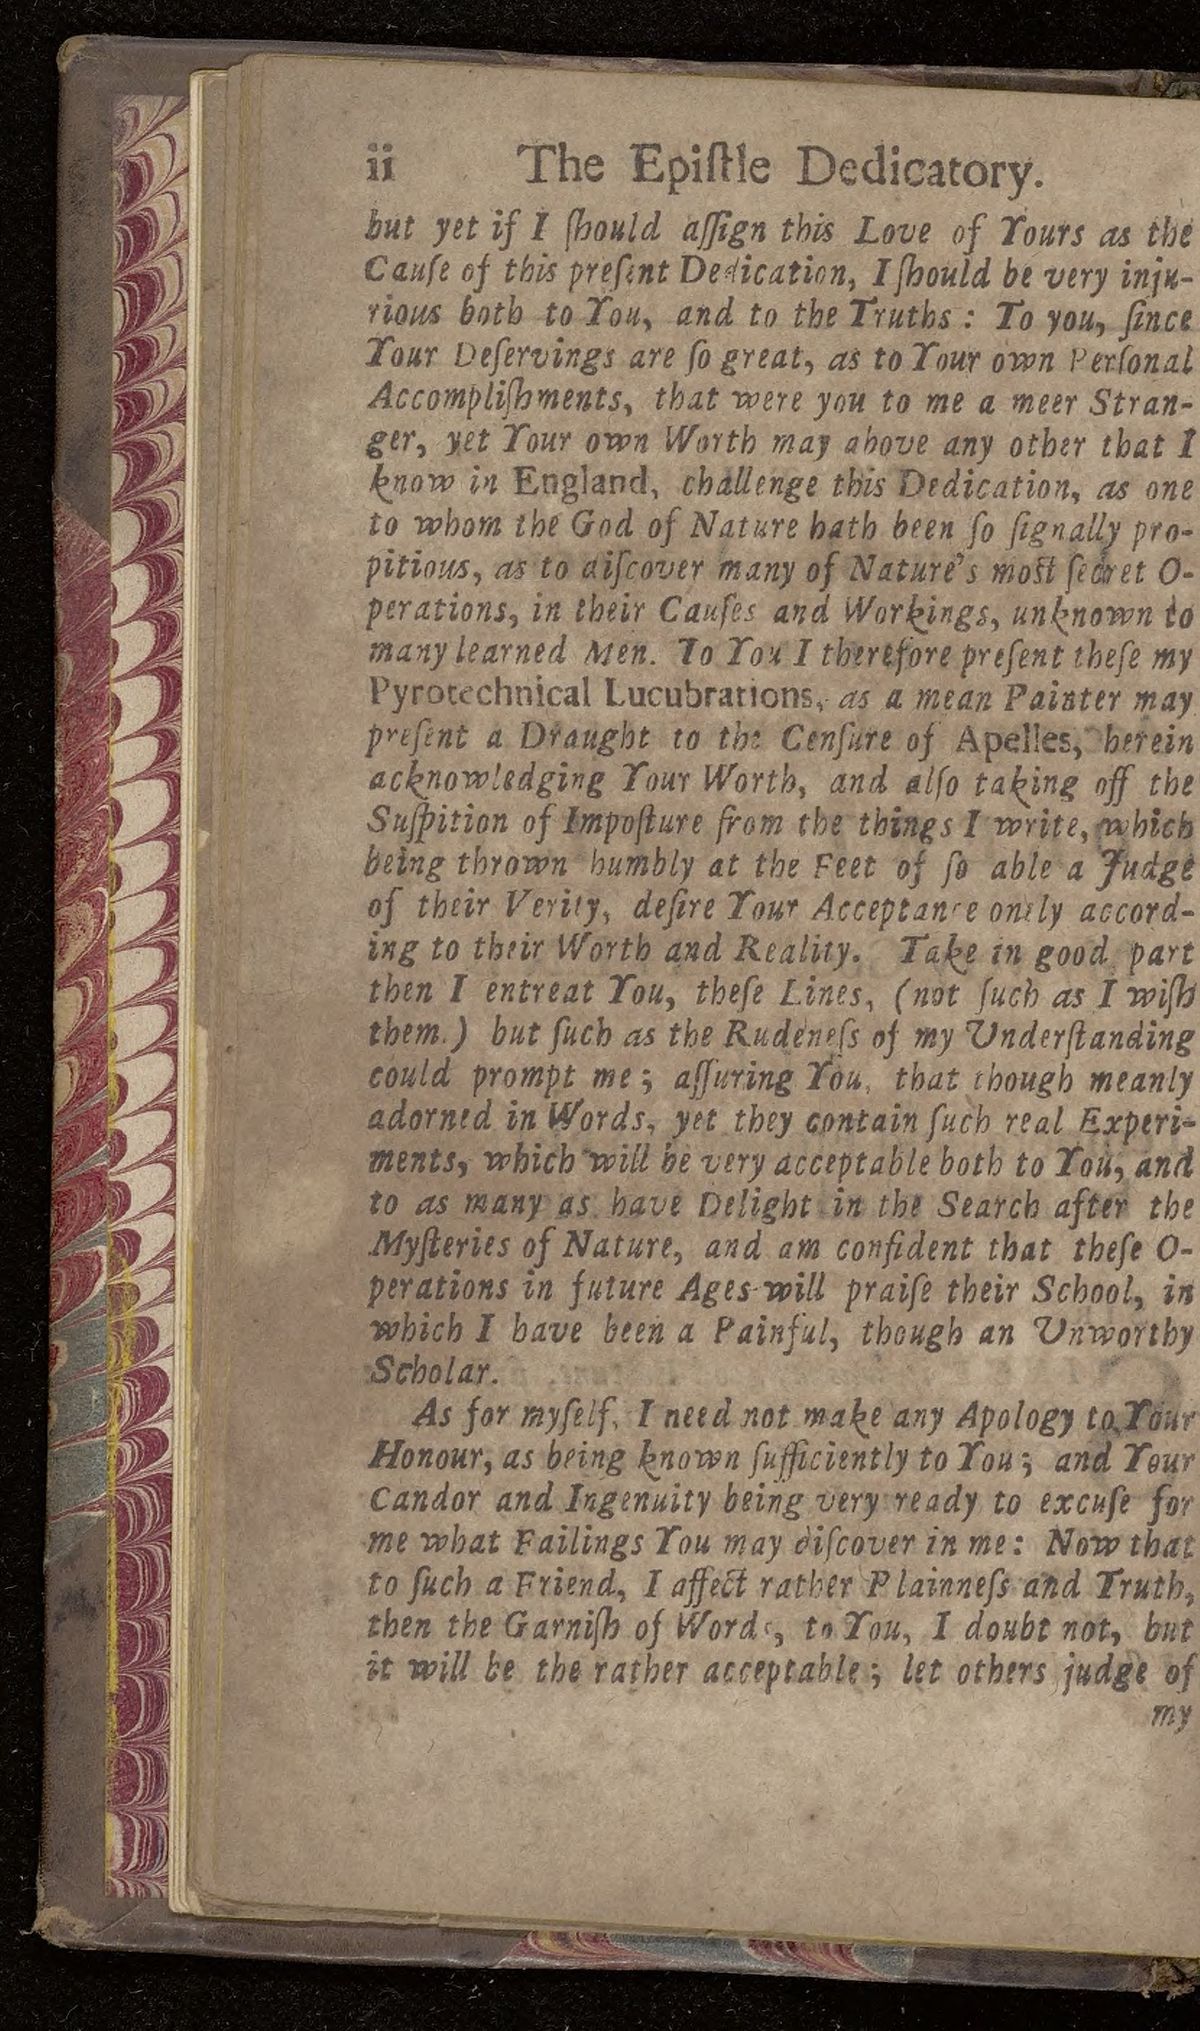 ii The Epiſtle Dedicatory.
but yet if I ſhould aſſign this Love of Yours as the
Cauſe of this preſent Dedication, I ſhould be very inju-
rious both to You, and to the Truths : To you, ſince
Your Deſervings are ſo great, as to Your own Perſonal
Accompliſhments, that were you to me a meer Stran-
ger, yet Your own Worth may above any other that I
know in England, challenge this Dedication, as one
to whom the God of Nature hath been ſo ſignally pro-
pitious, as to diſcover many of Nature's moſt ſecret O-
perations, in their Cauſes and Workings, unknown to
many learned Men. To You I therefore preſent theſe my
Pyrotechnical Lucubrations, as a mean Painter may
preſent a Draught to the Cenſure of Apelles, herein
acknowledging Your Worth, and alſo taking off the
Suſpition of Impoſture from the things I write, which
being thrown humbly at the Feet of ſo able a Judge
of their Verity, deſire Your Acceptance onely accord-
ing to their Worth and Reality. Take in good part
then I entreat You, theſe Lines, (not ſuch as I wiſh
them.) but ſuch as the Rudeneſs of my Underſtanding
could prompt me ; aſſuring You, that though meanly
adorned in Words, yet they contain ſuch real Experi-
ments, which will be very acceptable both to You, and
to as many as have Delight in the Search after the
Myſteries of Nature, and am confident that theſe O-
perations in future Ages will praiſe their School, in
which I have been a Painful, though an Unworthy
Scholar.
As for myſelf, I need not make any Apology to Your
Honour, as being known ſufficiently to You ; and Your
Candor and Ingenuity being very ready to excuſe for
me what Failings You may diſcover in me : Now that
to ſuch a Friend, I affect rather Plainneſs and Truth,
then the Garniſh of Words, to You, I doubt not, but
it will be the rather acceptable ; let others judge of
my